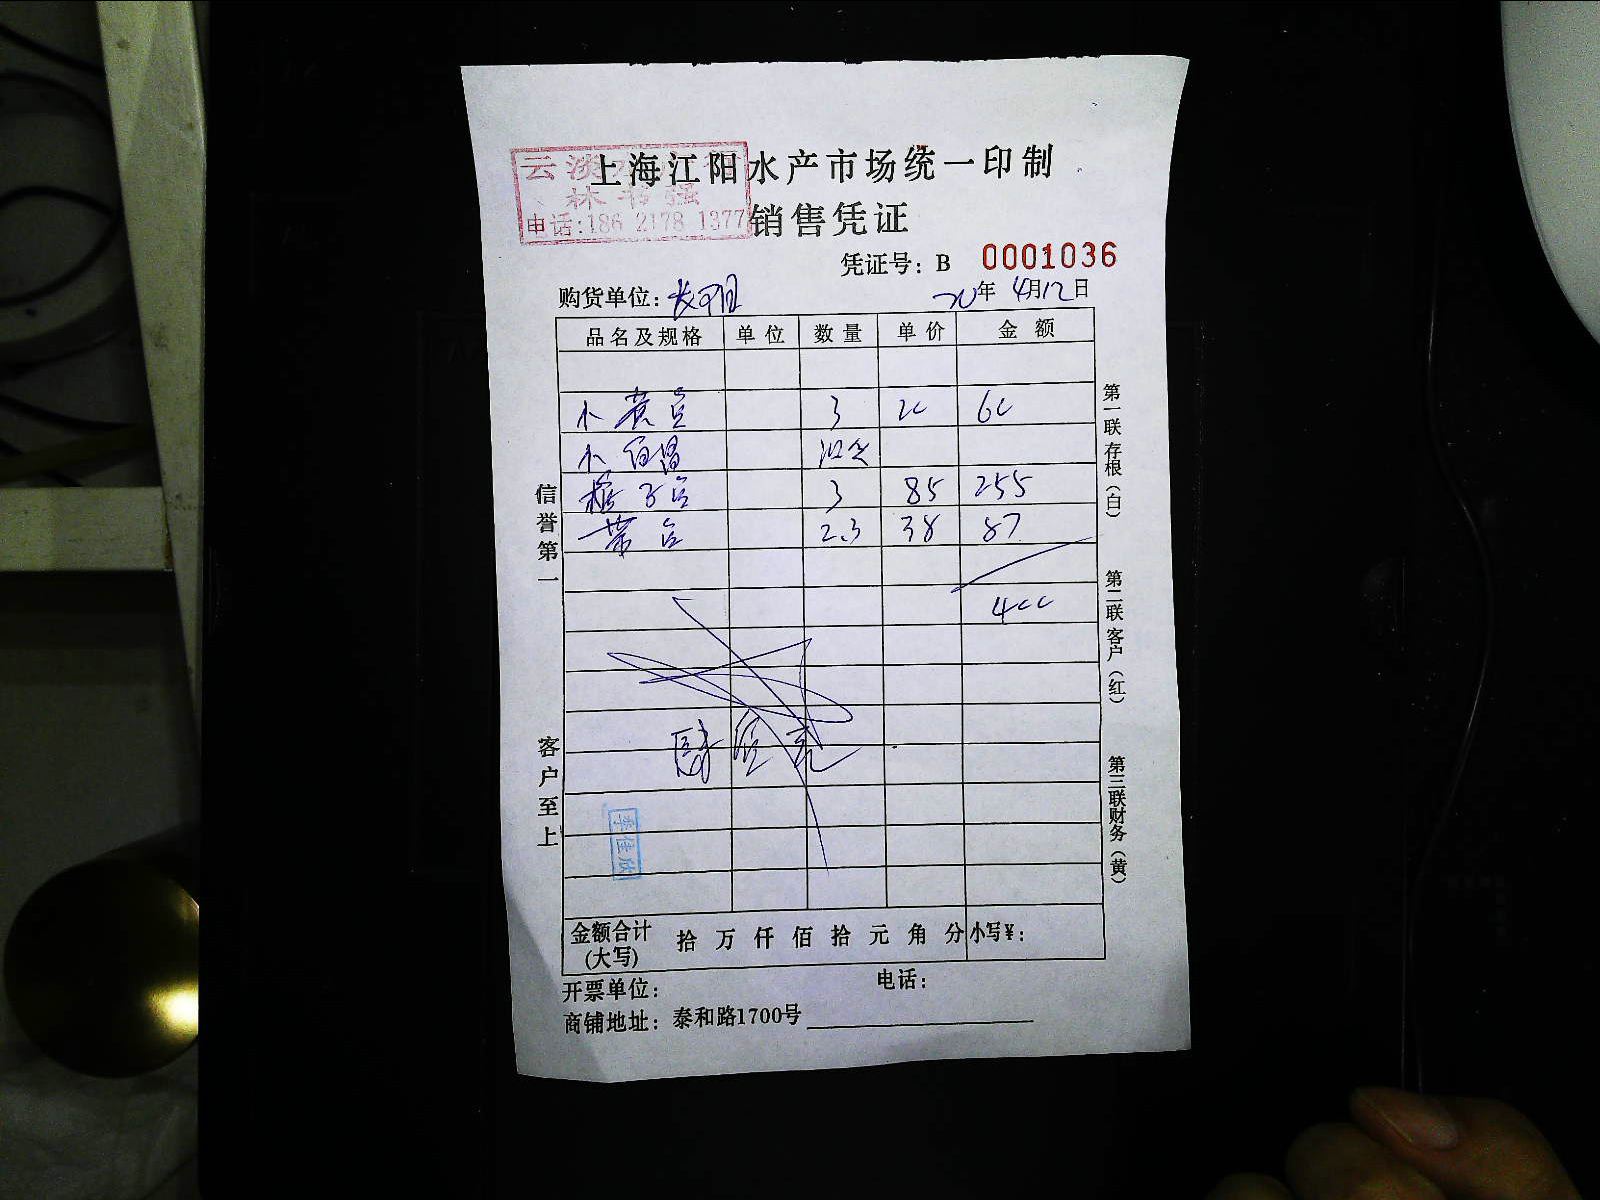 上海江阳水产市场统一印制
云淡
林书强
电话:186 2178 1377
销售凭证
凭证号: B 0001036
购货单位:
年 4月12日
品名及规格 单位 数量 单价 金额
小黄鱼 3 20 60
小
3 85 255
带鱼 2.3 38 87
400
信誉第一
客户至上
第一联存根(白)
第二联客户(红)
第三联财务(黄)
李佳欣
金额合计(大写) 拾 万 仟 佰 拾 元 角 分 小写¥:
开票单位: 电话:
商铺地址: 泰和路1700号